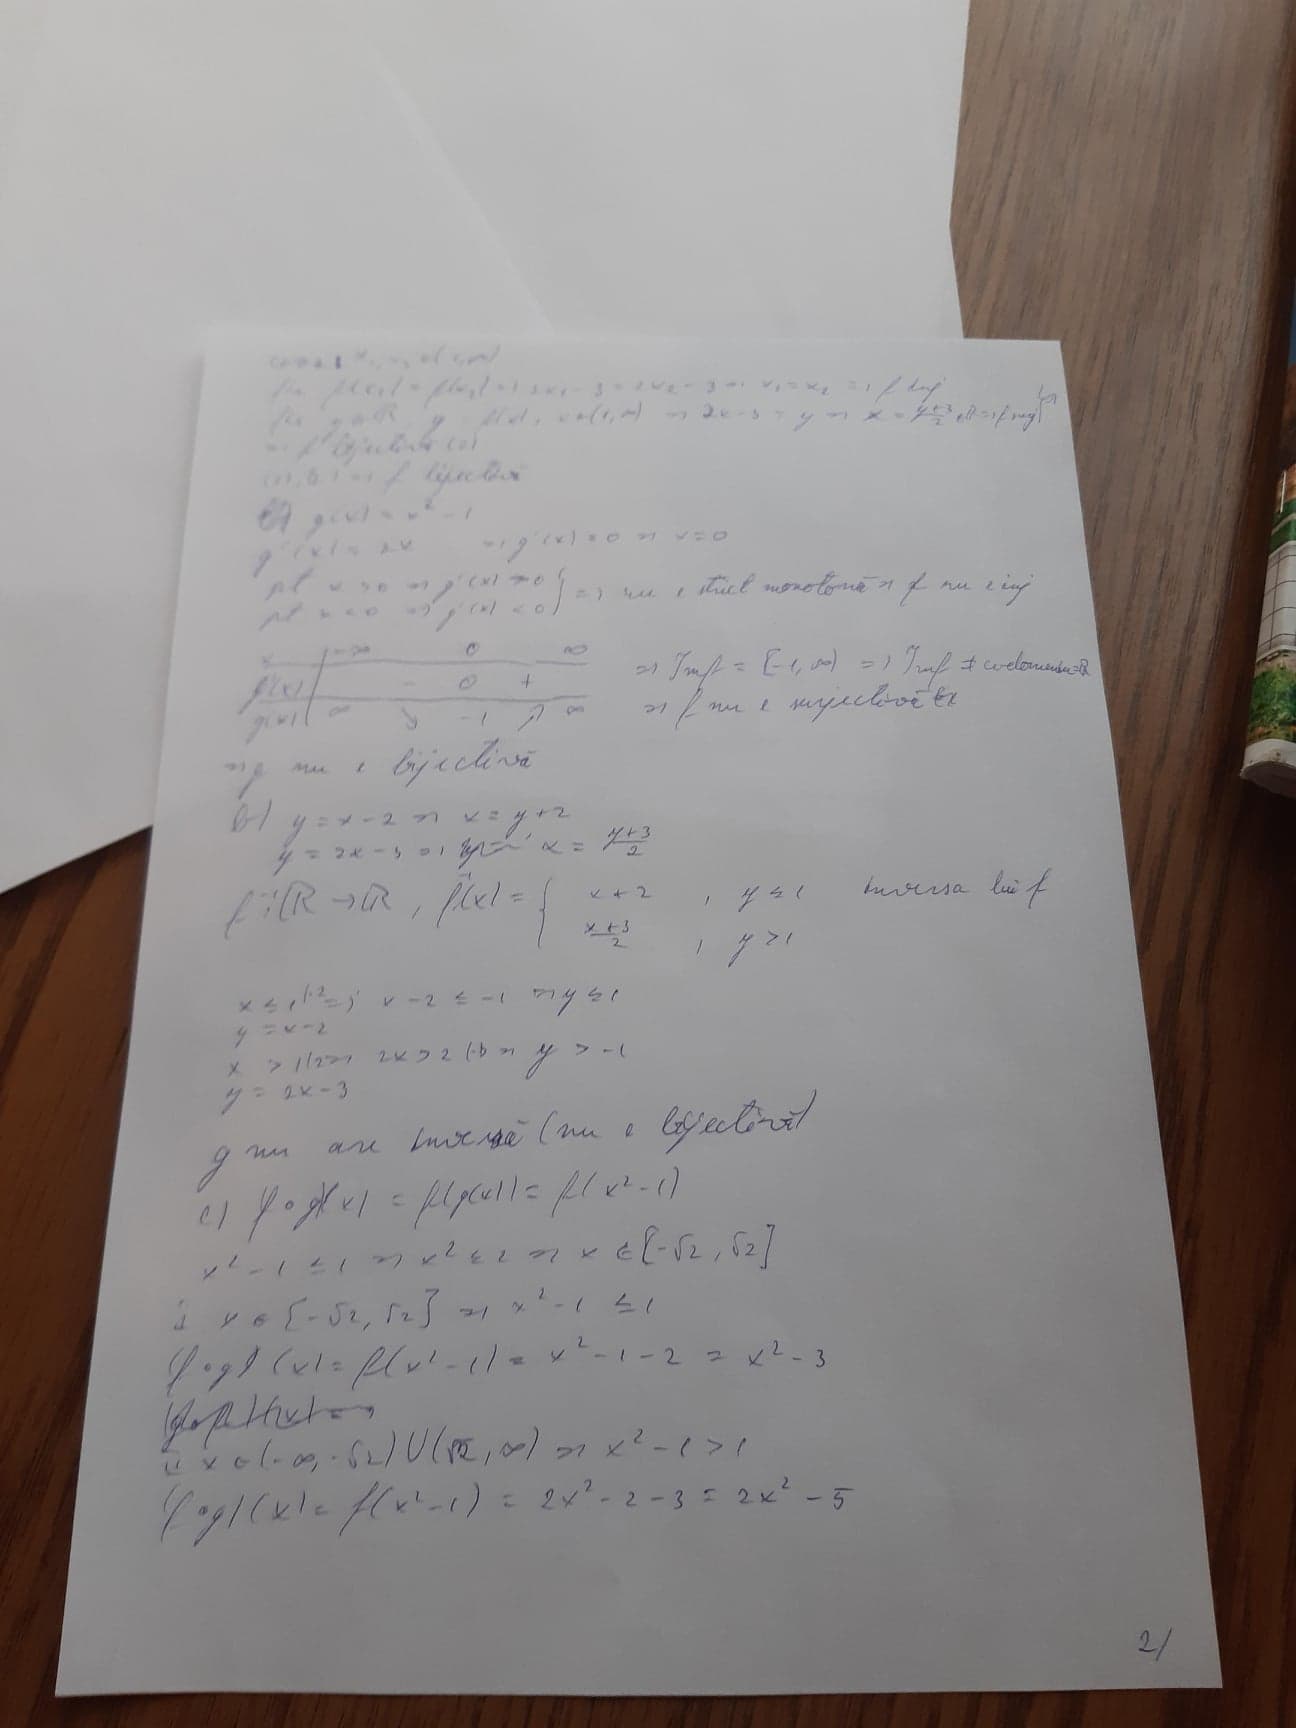 fie f(x₁) = f(x₂) => 2x₁ - 3 = 2x₂ - 3 => x₁ = x₂ => f inj
fie y ∈ ℝ y = f(x), x ∈ (1, ∞) => 2x - 3 = y => x = (y+3)/2 ∈ ℝ => f surj
=> f bijectivă (2)
(1), (2) => f bijectivă
g(x) = x² - 1
g'(x) = 2x => g'(x) = 0 => x = 0
pt x > 0 => g'(x) > 0
pt x < 0 => g'(x) < 0 } => nu e strict monotonă => f nu e inj
x | -∞ 0 ∞
f'(x) | - 0 +
g(x) | ∞ ↘ -1 ↗ ∞
=> Imf = [-1, ∞) => Imf ≠ codomeniu = ℝ
=> f nu e surjectivă
=> g nu e bijectivă
b) y = x - 2 => x = y + 2
y = 2x - 3 => x = (y+3)/2
f⁻¹: ℝ → ℝ, f⁻¹(x) = { x + 2 , y ≤ 1 inversa lui f
(x+3)/2 , y > 1
x ≤ 1 |-2 => x - 2 ≤ -1 => y ≤ 1
y = x - 2
x > 1 |·2 => 2x > 2 |-3 => y > -1
y = 2x - 3
g nu are inversă (nu e bijectivă)
c) (f∘g)(x) = f(g(x)) = f(x² - 1)
x² - 1 ≤ 1 => x² ≤ 2 => x ∈ [-√2, √2]
i x ∈ [-√2, √2] => x² - 1 ≤ 1
(f∘g)(x) = f(x² - 1) = x² - 1 - 2 = x² - 3
ii x ∈ (-∞, -√2) ∪ (√2, ∞) => x² - 1 > 1
(f∘g)(x) = f(x² - 1) = 2x² - 2 - 3 = 2x² - 5
2/